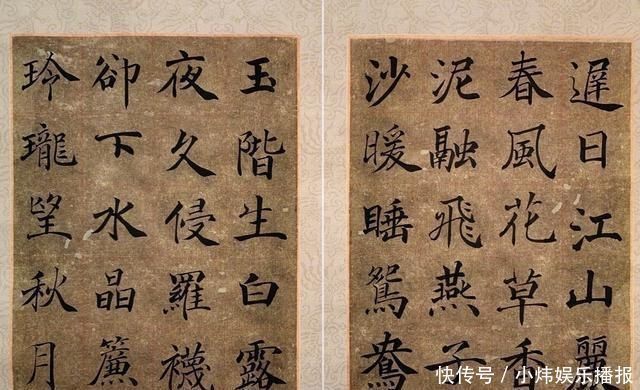 遲日江山麗
春風花草香
泥融飛燕子
沙暖睡鴛鴦
玉階生白露
夜久侵羅襪
卻下水晶簾
玲瓏望秋月
快传号 / 小炜娱乐播报